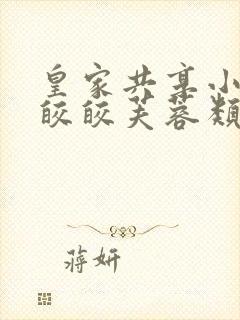 皇家共享小
皎皎芙蓉颓
蒋妍